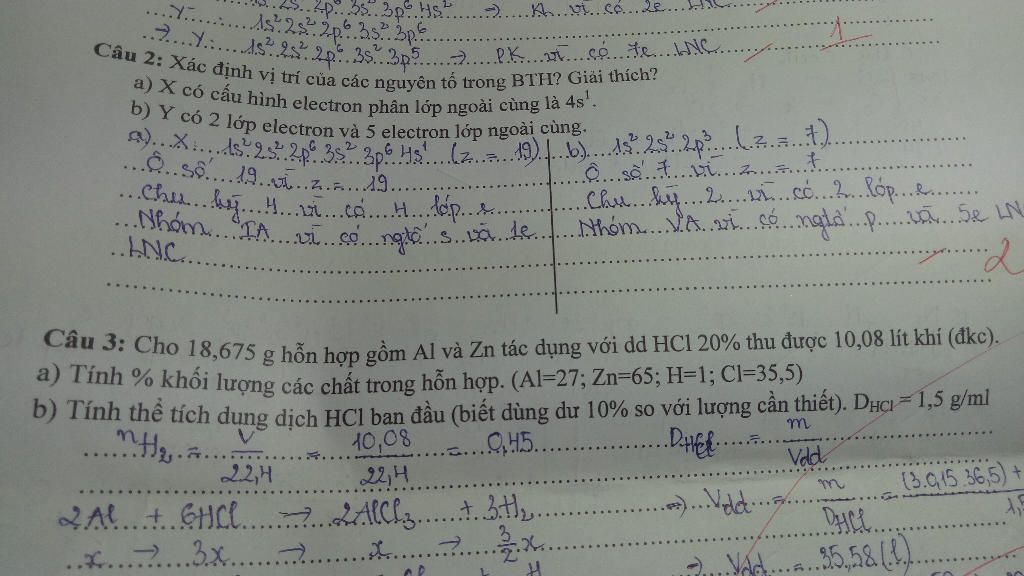 1s² 2s² 2p⁶ 3s² 3p⁶ 4s² → KL vì có 2e LNC
Y⁻: 1s² 2s² 2p⁶ 3s² 3p⁶
→ Y: 1s² 2s² 2p⁶ 3s² 3p⁵ → PK vì có 7e LNC
1
Câu 2: Xác định vị trí của các nguyên tố trong BTH? Giải thích?
a) X có cấu hình electron phân lớp ngoài cùng là 4s¹.
b) Y có 2 lớp electron và 5 electron lớp ngoài cùng.
a) X: 1s² 2s² 2p⁶ 3s² 3p⁶ 4s¹ (z = 19)
Ô số 19 vì z = 19
Chu kỳ 4 vì có 4 lớp e
Nhóm IA vì có ngtố s và 1e
LNC
b) 1s² 2s² 2p³ (z = 7)
Ô số 7 vì z = 7
Chu kỳ 2 vì có 2 lớp e
Nhóm VA vì có ngtố p và 5e LN
2
Câu 3: Cho 18,675 g hỗn hợp gồm Al và Zn tác dụng với dd HCl 20% thu được 10,08 lít khí (đkc).
a) Tính % khối lượng các chất trong hỗn hợp. (Al=27; Zn=65; H=1; Cl=35,5)
b) Tính thể tích dung dịch HCl ban đầu (biết dùng dư 10% so với lượng cần thiết). D_HCl = 1,5 g/ml
nH₂ = V/22,4 = 10,08/22,4 = 0,45
2Al + 6HCl → 2AlCl₃ + 3H₂
x → 3x → x → 3/2 x
D_HCl = m/Vdd
=> Vdd = m/D_HCl = (3.0,15.36,5) +
=> Vdd = 35,58 (l)